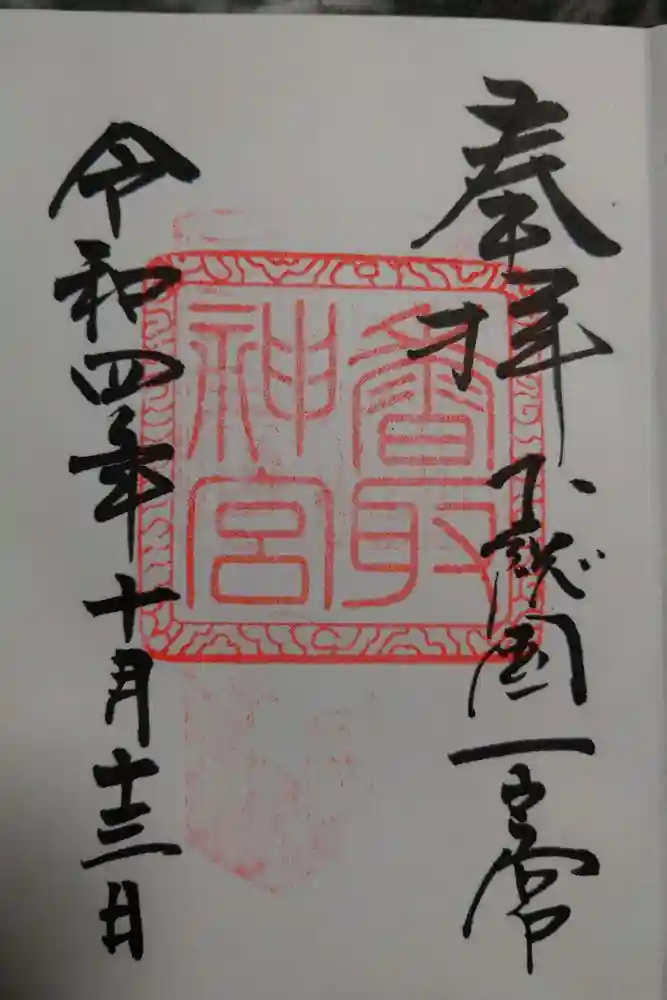 奉拝
下総国一之宮
香取
神宮
令和四年十月十三日